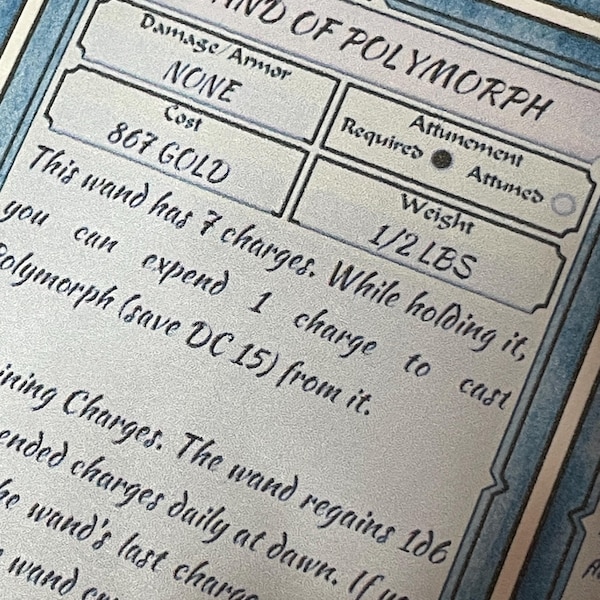 OF POLYMORPH
Damage/Armor
NONE
Attunement
Required Attuned
Cost
867 GOLD
Weight
1/2 LBS
This wand has 7 charges. While holding it,
you can expend 1 charge to cast
Polymorph (save DC 15) from it.
Charges. The wand regains 1d6
charges daily at dawn. If
wand's last
wand